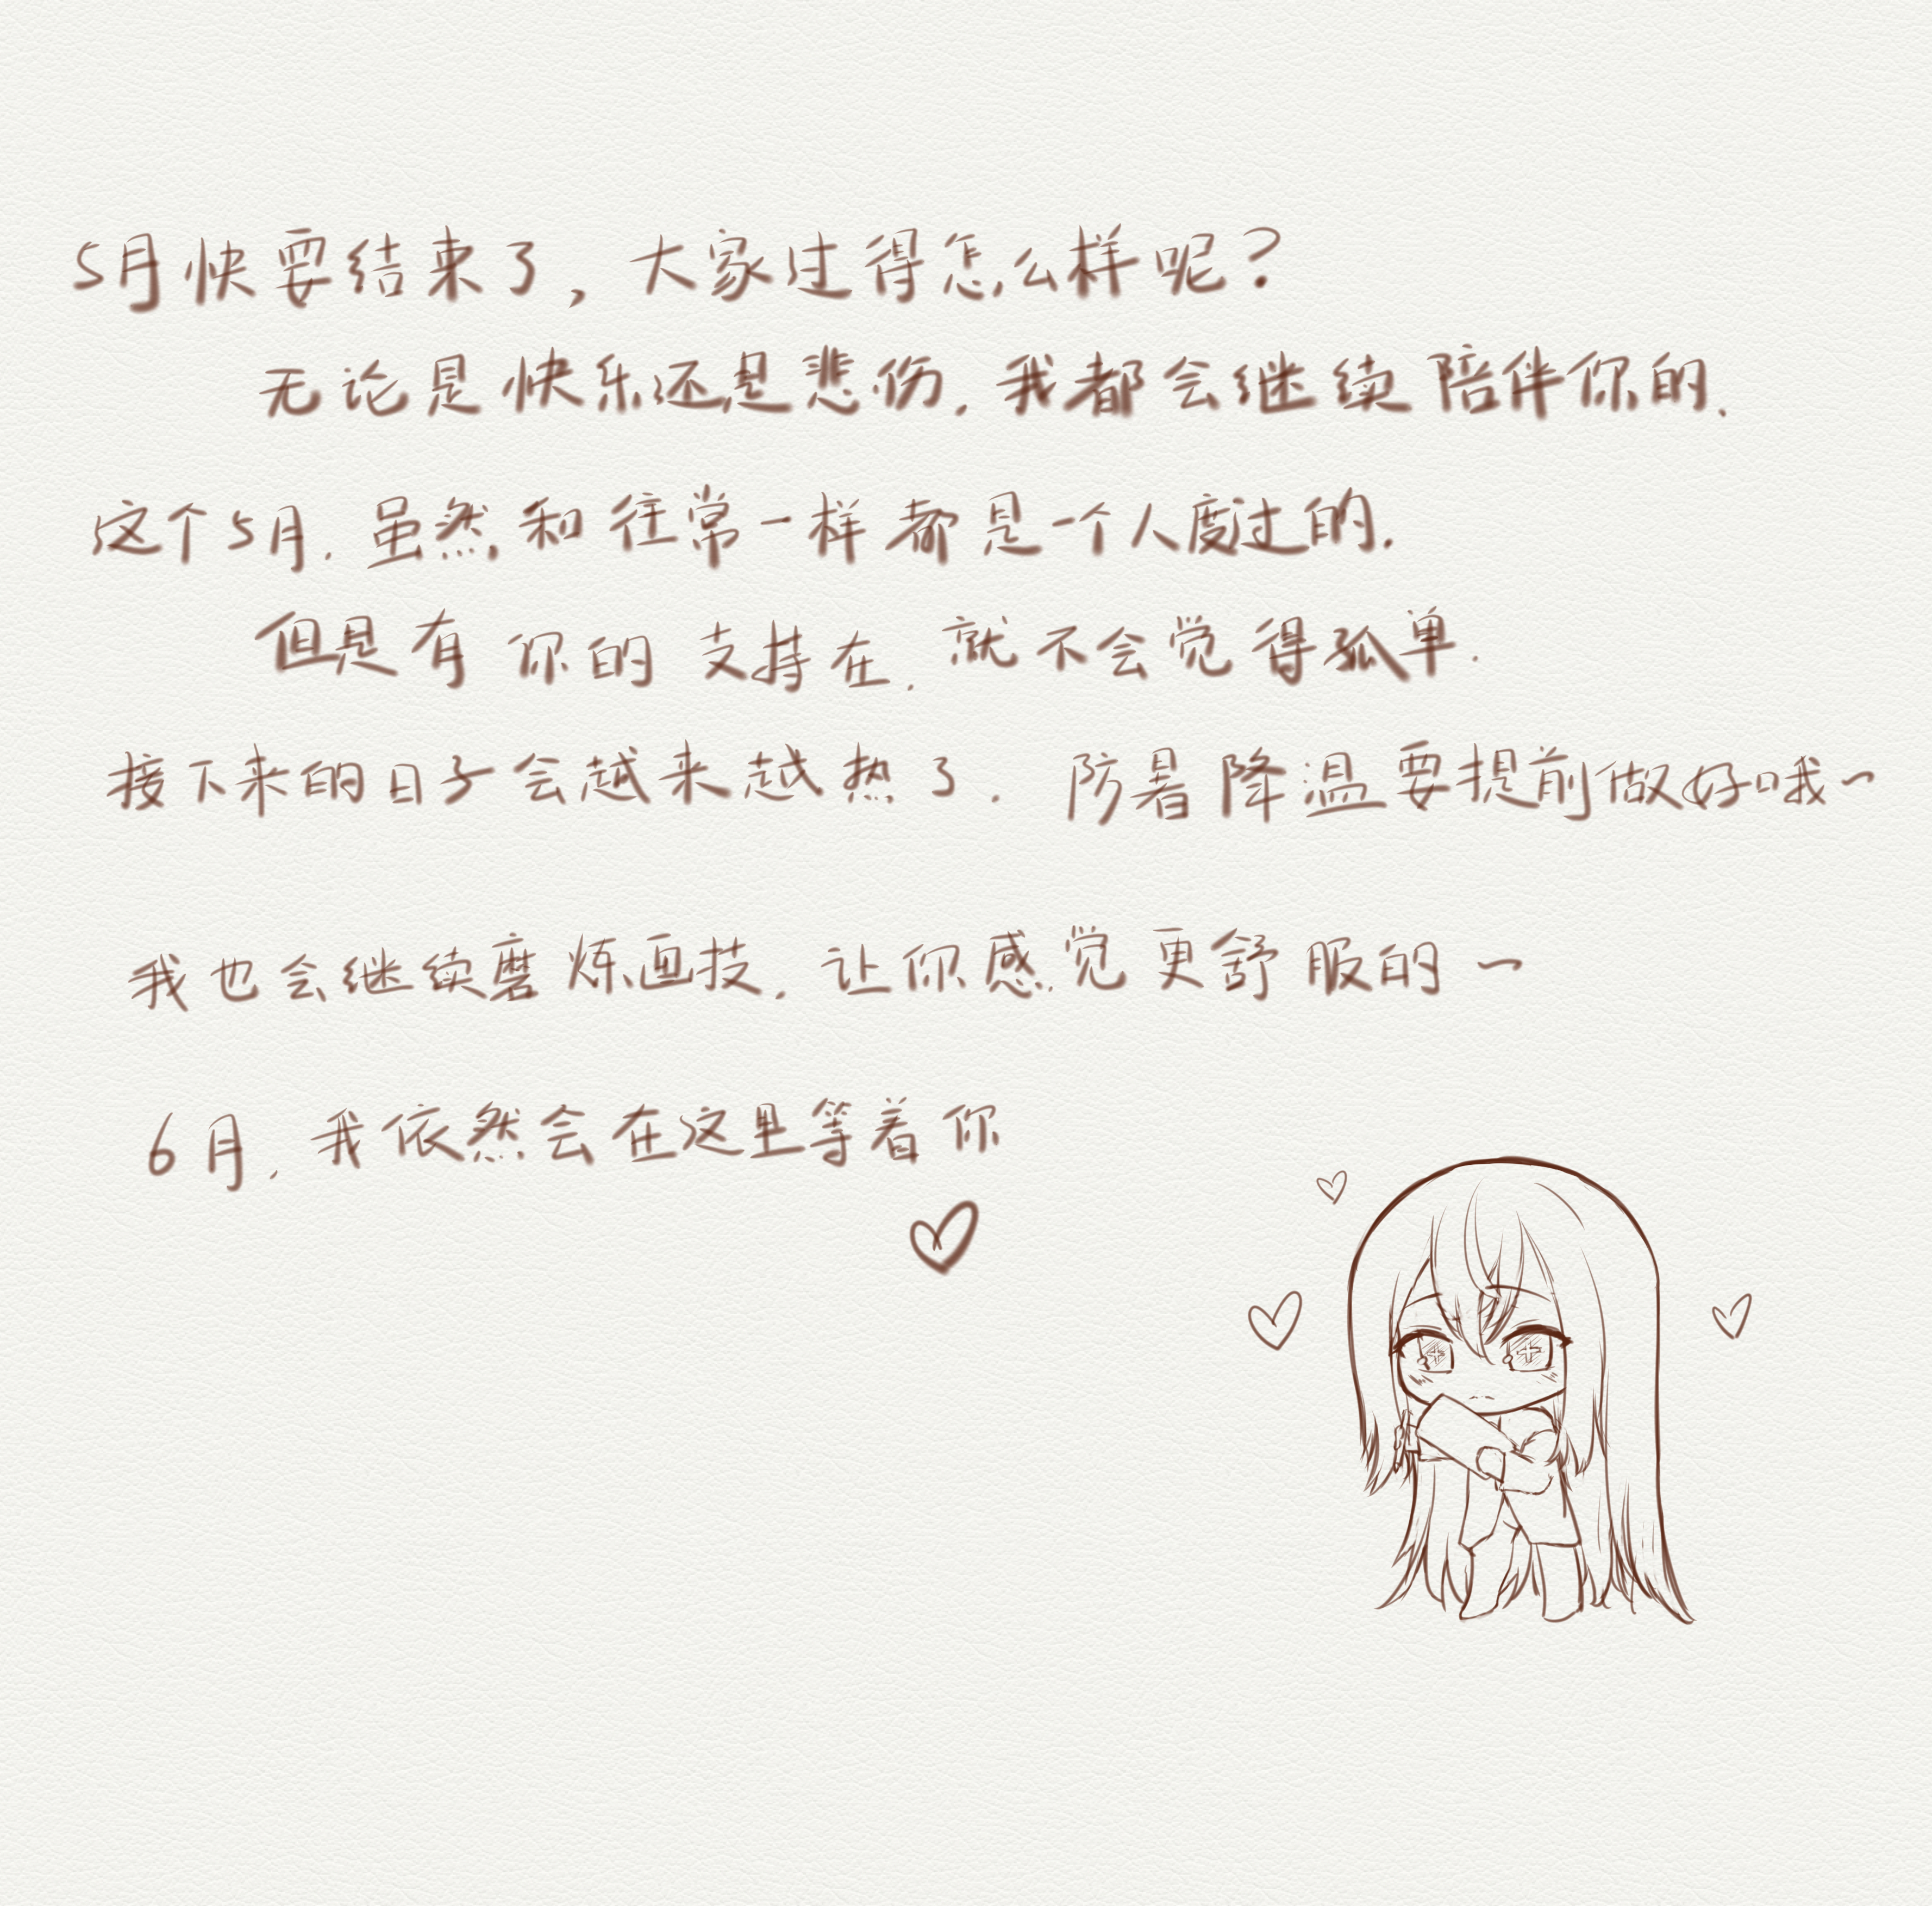 5月快要结束了，大家过得怎么样呢？
无论是快乐还是悲伤，我都会继续陪伴你的、
这个5月，虽然和往常一样都是一个人度过的.
但是有你的支持在，就不会觉得孤单.
接下来的日子会越来越热了，防暑降温要提前做好哦~
我也会继续磨炼画技，让你感觉更舒服的~
6月，我依然会在这里等着你